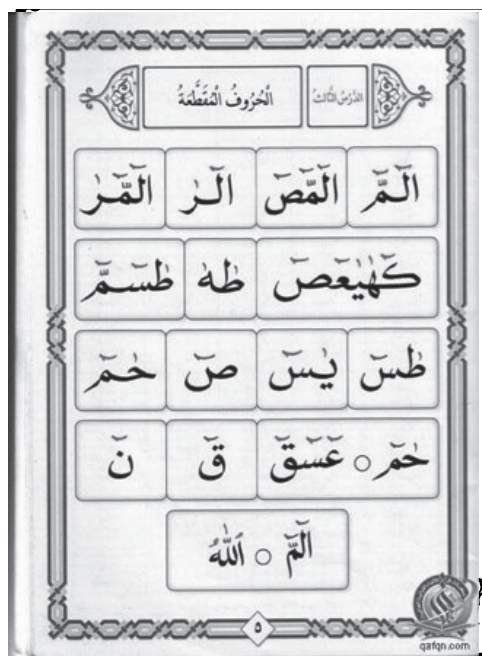 الدَّرْسُ الثَّالِثُ الْحُرُوفُ الْمُقَطَّعَةُ
الٓمّٓ الٓمّٓصٓ الٓرٰ الٓمّٓرٰ
كٓهٰيٰعٓصٓ طٰهٰ طٰسٓمّٓ
طٰسٓ يٰسٓ صٓ حٰمٓ
حٰمٓ ○ عٓسٓقٓ قٓ نٓ
الٓمّٓ ○ اَللّٰهُ
٥
qafqn.com